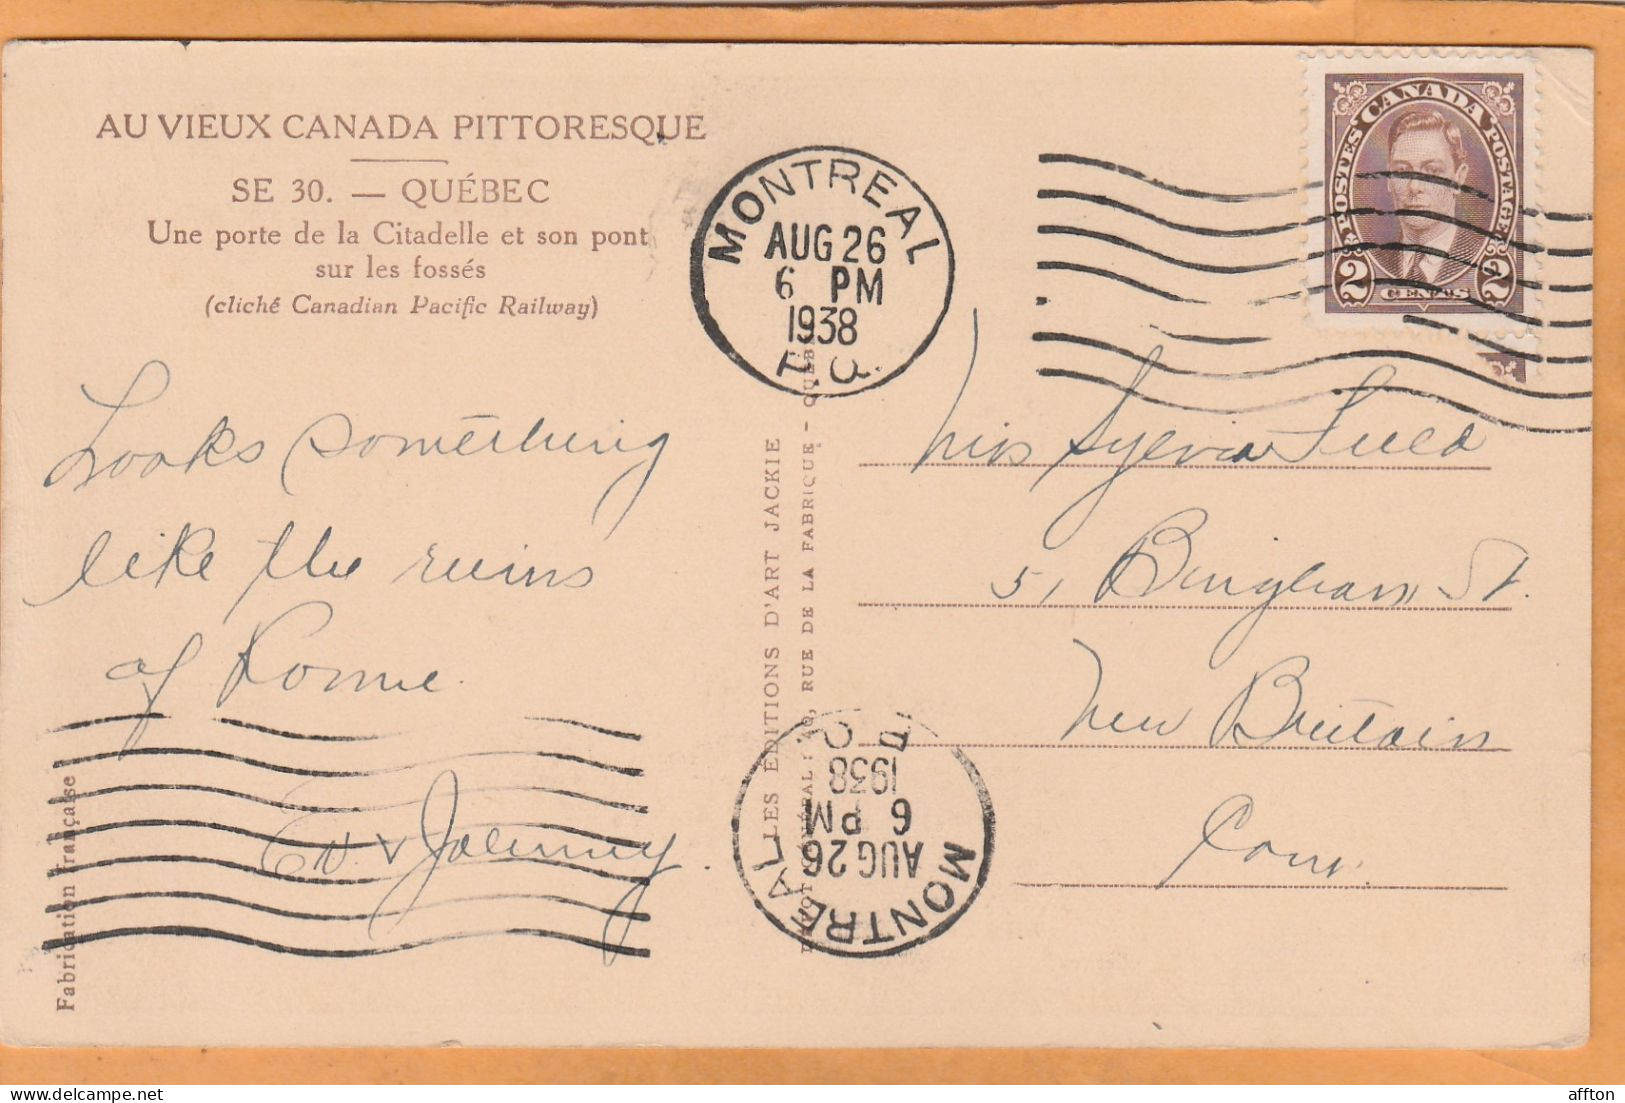 AU VIEUX CANADA PITTORESQUE
SE 30. — QUÉBEC
Une porte de la Citadelle et son pont
sur les fossés
(cliché Canadian Pacific Railway)
Looks something
like the ruins
of Rome.
Ed. & Johnny.
Fabrication française
LES EDITIONS D'ART JACKIE
RUE DE LA FABRIQUE - QUÉBEC
MONTREAL
AUG 26
6 PM
1938
P.Q.
CANADA
POSTES POSTAGE
2 CENTS 2
Miss Sylvia
51 Bingham St.
New Britain
Conn.
MONTREAL
AUG 26
6 PM
1938
P.Q.
affton